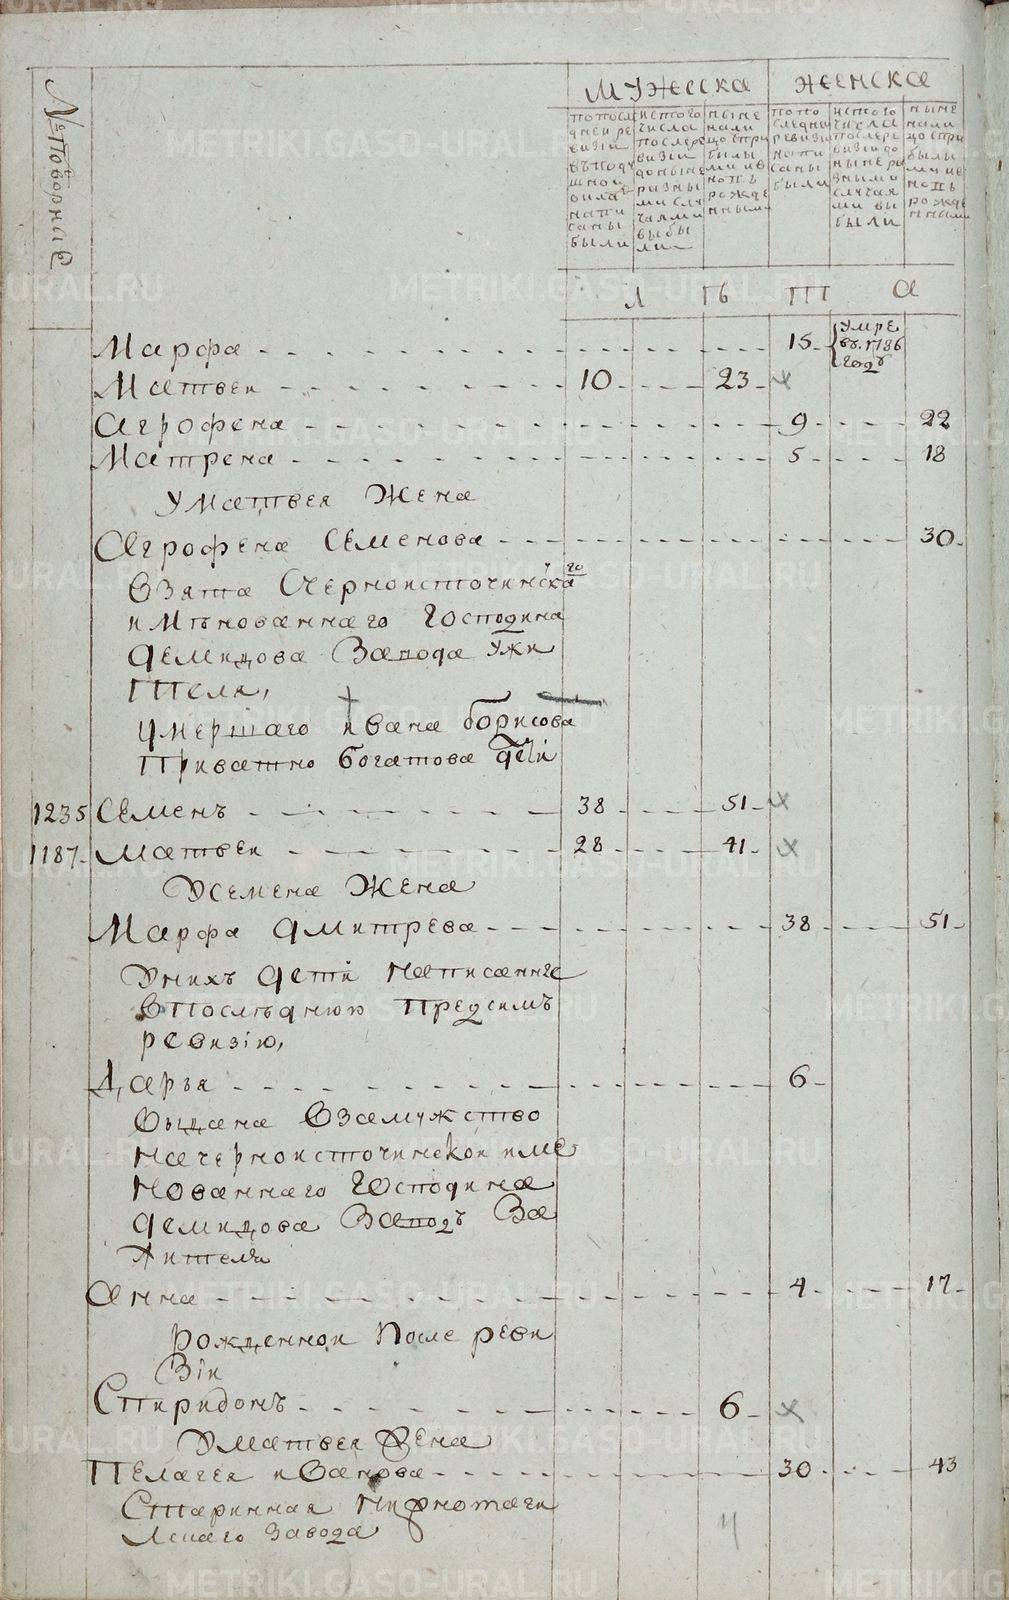 METRIKI.GASO-URAL.RU
№ поворная
мужеска женска
по после
дней ре
визіи
въ поду
шной
окладъ
напи
саны
были
ис того
числа
после ре
визіи
до ныне
разны
ми слу
чаями
выбы
ли
ныне
нали
цо с при
былы
ми и в
новъ
рожде
нными
по по
следней
ревизіи
напи
саны
были
ис того
числа
после ре
визіи до
ныне ра
зными
случая
ми вы
были
ныне
нали
цо с при
былы
ми и в
новъ
рожде
нными
Л ГЬ ТТ а
Марфа 15 умре въ 1786 годъ
Матвеи 10 23
Агрофена 9 22
Матрена 5 18
у Матвея Жена
Агрофена Семенова 30
взята С черноисточинска го
имѣнованнаго Господина
демидова Завода у жи
теля,
умершаго ивана борисова
Приватно богатова дети
1235 Семенъ 38 51
1187 Матвеи 28 41
У Семена Жена
Марфа дмитрева 38 51
У нихъ дети написанные
в последнюю пред симъ
ревизію,
Дарья 6
выдана В замужство
на черноисточинской име
нованнаго Господина
демидова Заводъ За
жителя
анна 4 17
рожденнои После реви
Зіи
Спиридонъ 6
У Матвея Жена
Пелагея иванова 30 43
Старинная Нижнотаги
лскаго завода